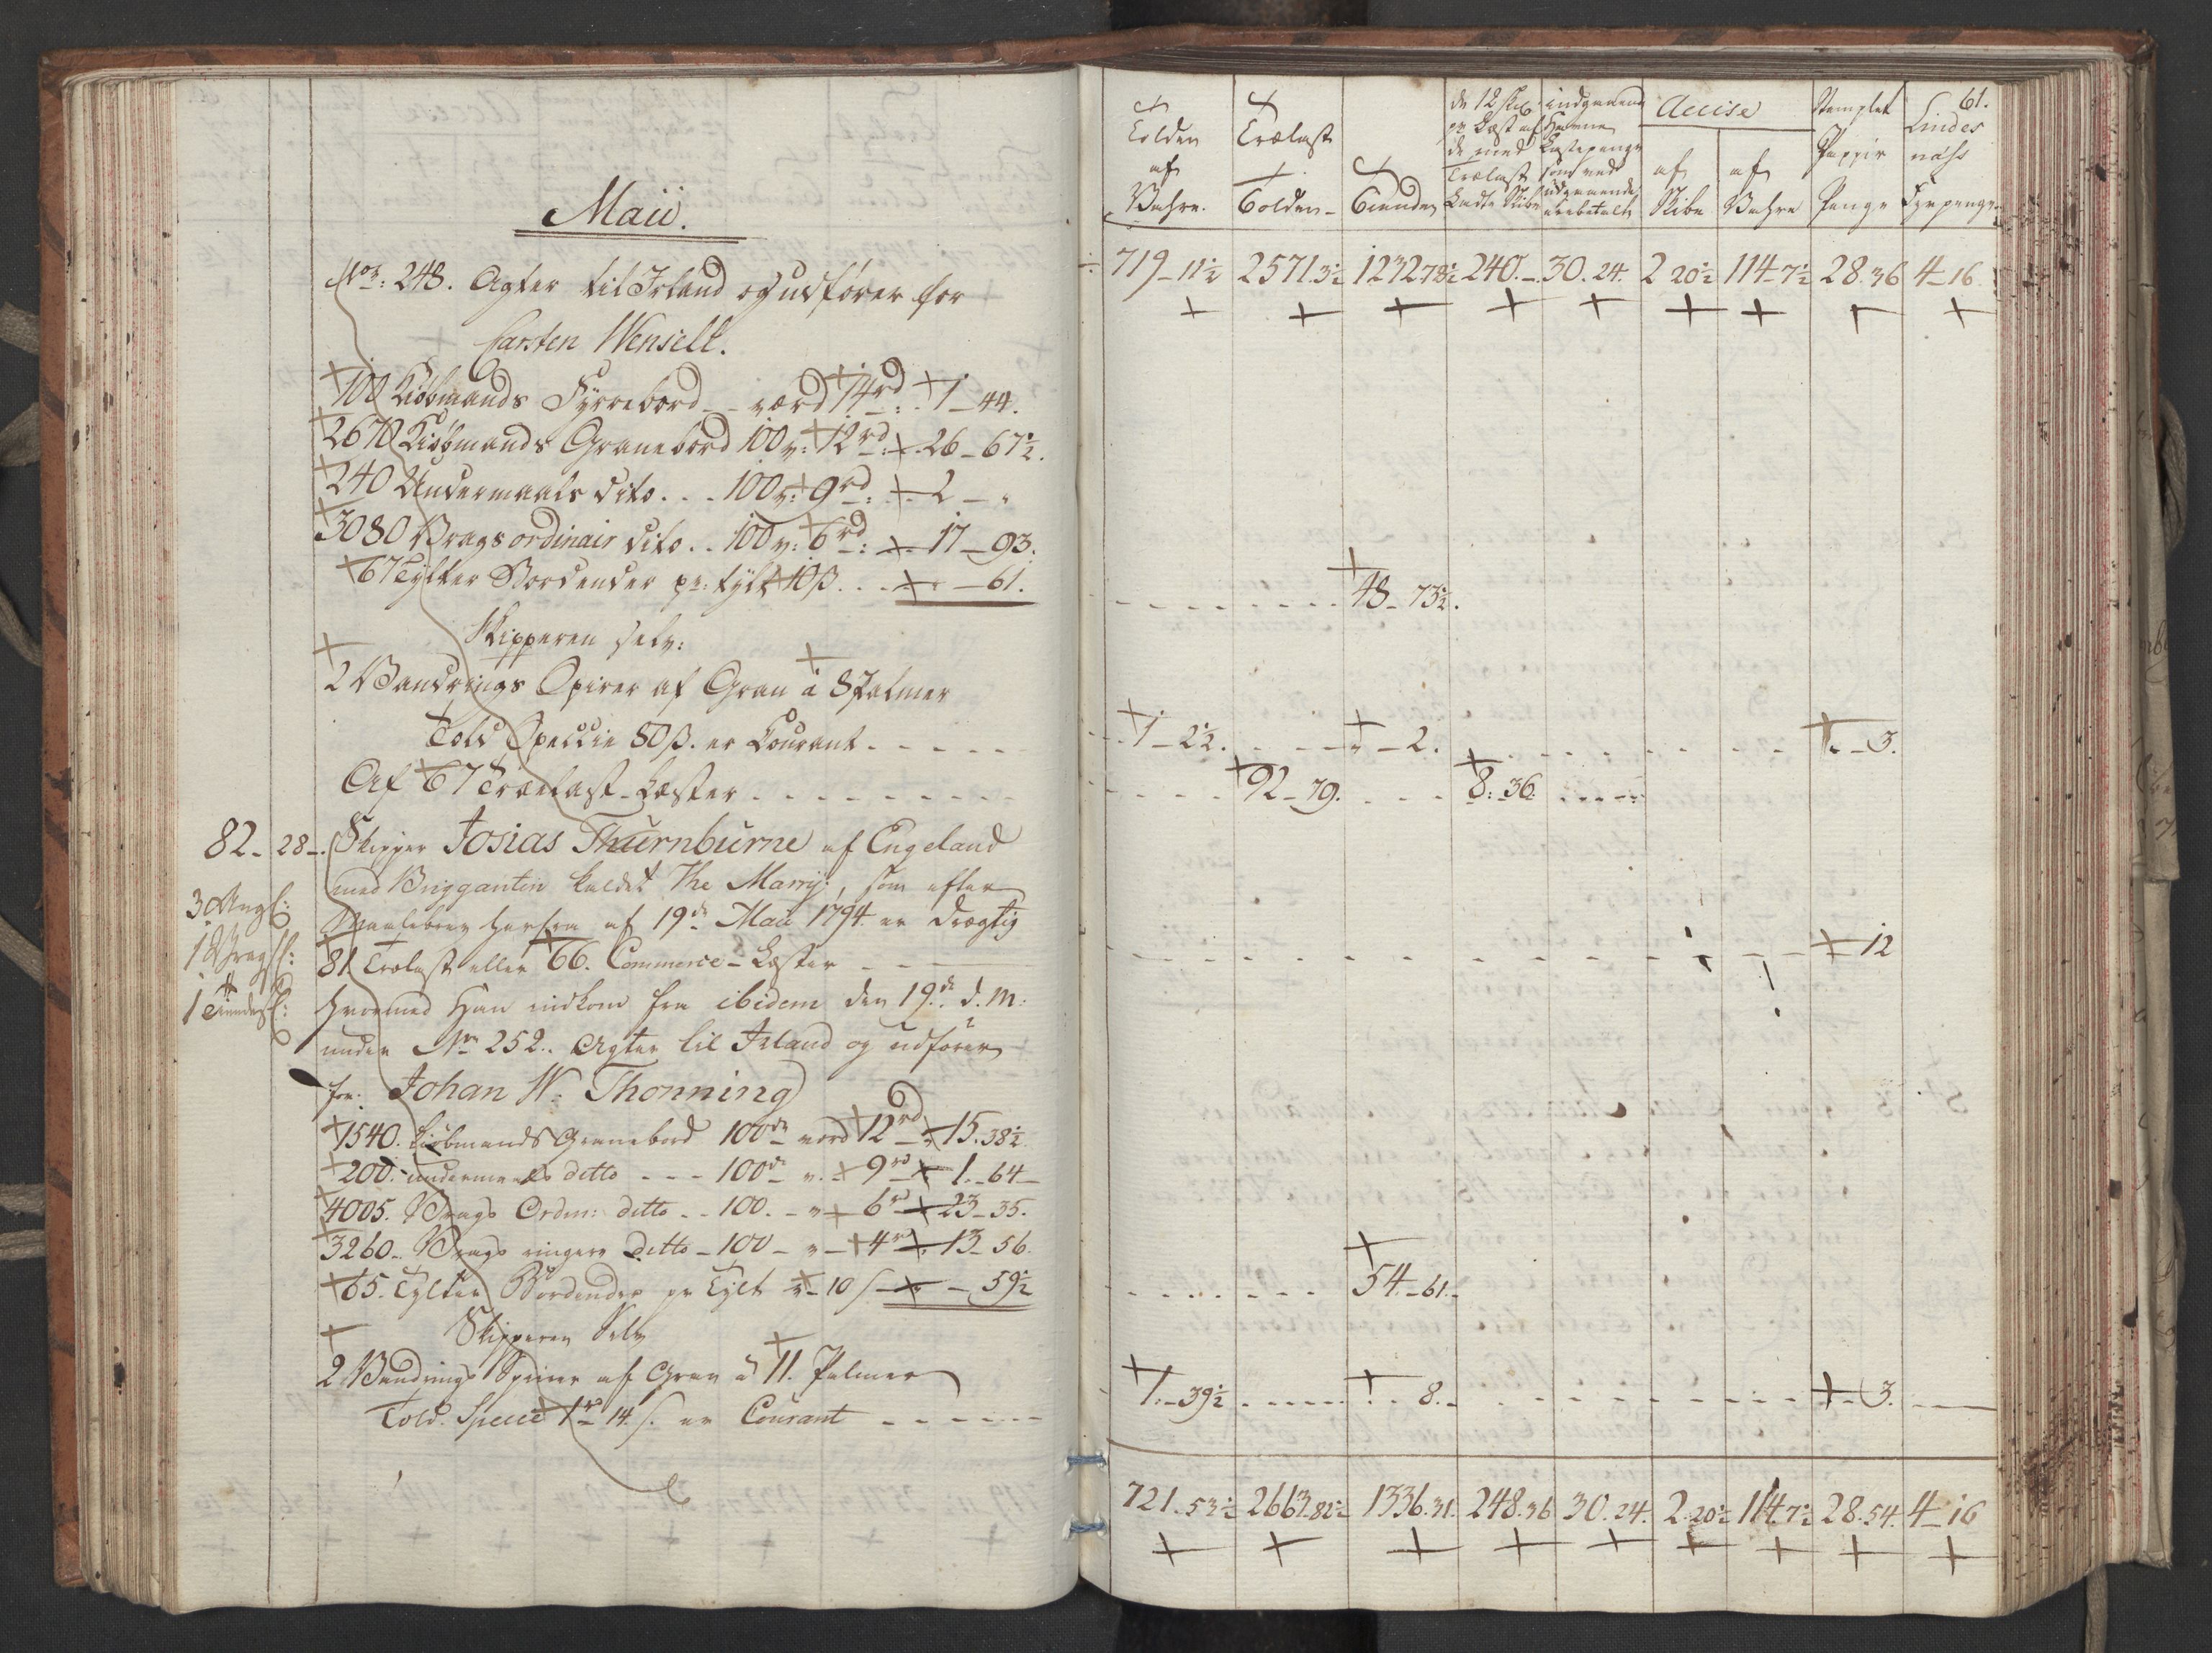 Maii.
No: 248. Agter til Irland og udfører for
Carsten Wensell.
100 Kiøbmands Fyrrebord værd 14rd: 1 - 44.
2670 Kiøbmands Granebord 100 v: 12rd: 26 - 67½.
240 Undermaals dito... 100 v: 9rd: 2 - "
3080 Vrags ordinair dito.. 100 v: 6rd: 17 - 93.
67 Tylter Bordender pr: tylt 10ß... " - 61.
Skipperen selv:
2 Bandrings Spirer af Gran à 8 Palmer
Told Speccie 80ß. er Courant
Af 67 Trælast-Læster
82. 28. Skipper Josias Thurnburne af Engeland
med Briggantin kaldet The Marry, som efter
Maalebrev herfra af 19de Maii 1794 er drægtig
3 Angl:
1 Vragsl:
1 Tiendesl:
81 Trælast eller 66. Commerce-Læster
hvormed Han indkom fra ibidem den 19de d. M:
under No 252. Agter til Irland og udfører
for Johan W. Thonning
1540. Kiøbmands Granebord 100de værd 12rd 15. 38½
200. undermaals ditto --- 100de v. 9rd 1. - 64
4005. Vrags Ordin: ditto -- 100. - v 6rd 23 - 35.
3260. Vrags ringere Ditto - 100 - v - 4rd 13 - 56.
65. Tylter Bordender pr Tylt v - 10 ß " - 59½
Skipperen Selv
2 Bandrings Spirer af Gran à 11. Palmer
Told Specie 1rd 14 ß. er Courant
61.
Tolden af Vahre.
Trælast Tolden
Tienden
de 12 Skil: pr Læst af de med Trælast Ladte Skibe
indgaaende Havne Lastepenge som ved udgaaende erebetalt
Accise
af Skibe
af Vahre
Stemplet Papiir Penge
Lindes näss Fyrpenge
719 - 11½ 2571. 3½ 1232 78½ 240. - 30. 24. 2 20½ 114 - 7½ 28. 36 4 - 16
48 - 73½.
1 - 2½. " - 2. " - 3.
92 - 79. 8: 36
12
54. - 61.
1. - 39½ 8. 3.
721. 53½ 2663. 82½ 1336. 31. 248. 36 30. 24. 2. 20½ 114. 7½ 28. 54. 4 - 16